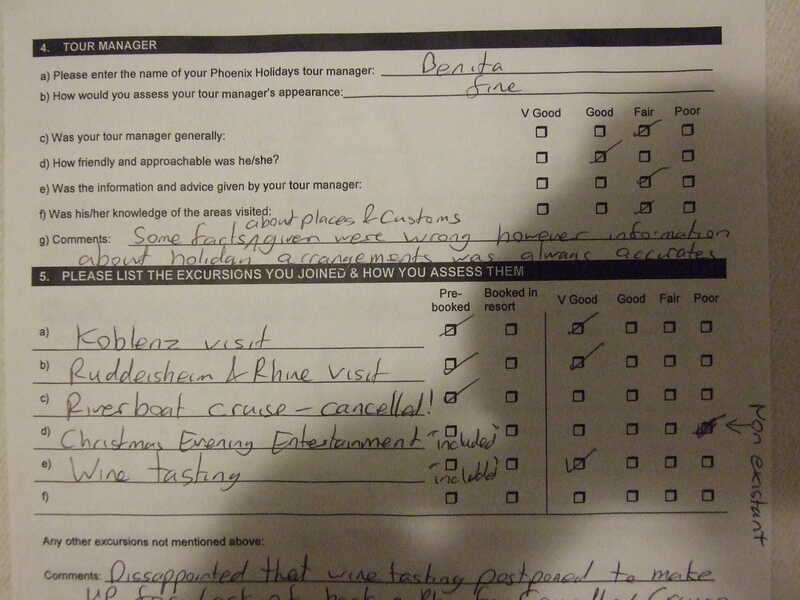 4. TOUR MANAGER
a) Please enter the name of your Phoenix Holidays tour manager: Benita
b) How would you assess your tour manager's appearance: fine
V Good Good Fair Poor
c) Was your tour manager generally:
d) How friendly and approachable was he/she?
e) Was the information and advice given by your tour manager:
f) Was his/her knowledge of the areas visited:
about places & Customs
g) Comments: Some facts given were wrong however information
about holiday arrangements was always accurate
5. PLEASE LIST THE EXCURSIONS YOU JOINED & HOW YOU ASSESS THEM
Pre-booked Booked in resort V Good Good Fair Poor
a) Koblenz visit
b) Ruddeisheim & Rhine visit
c) Riverboat cruise - cancelled!
d) Christmas Evening Entertainment - included
Non existant
e) Wine tasting - included
f)
Any other excursions not mentioned above:
Comments: Dissappointed that wine tasting postponed to make
UP for